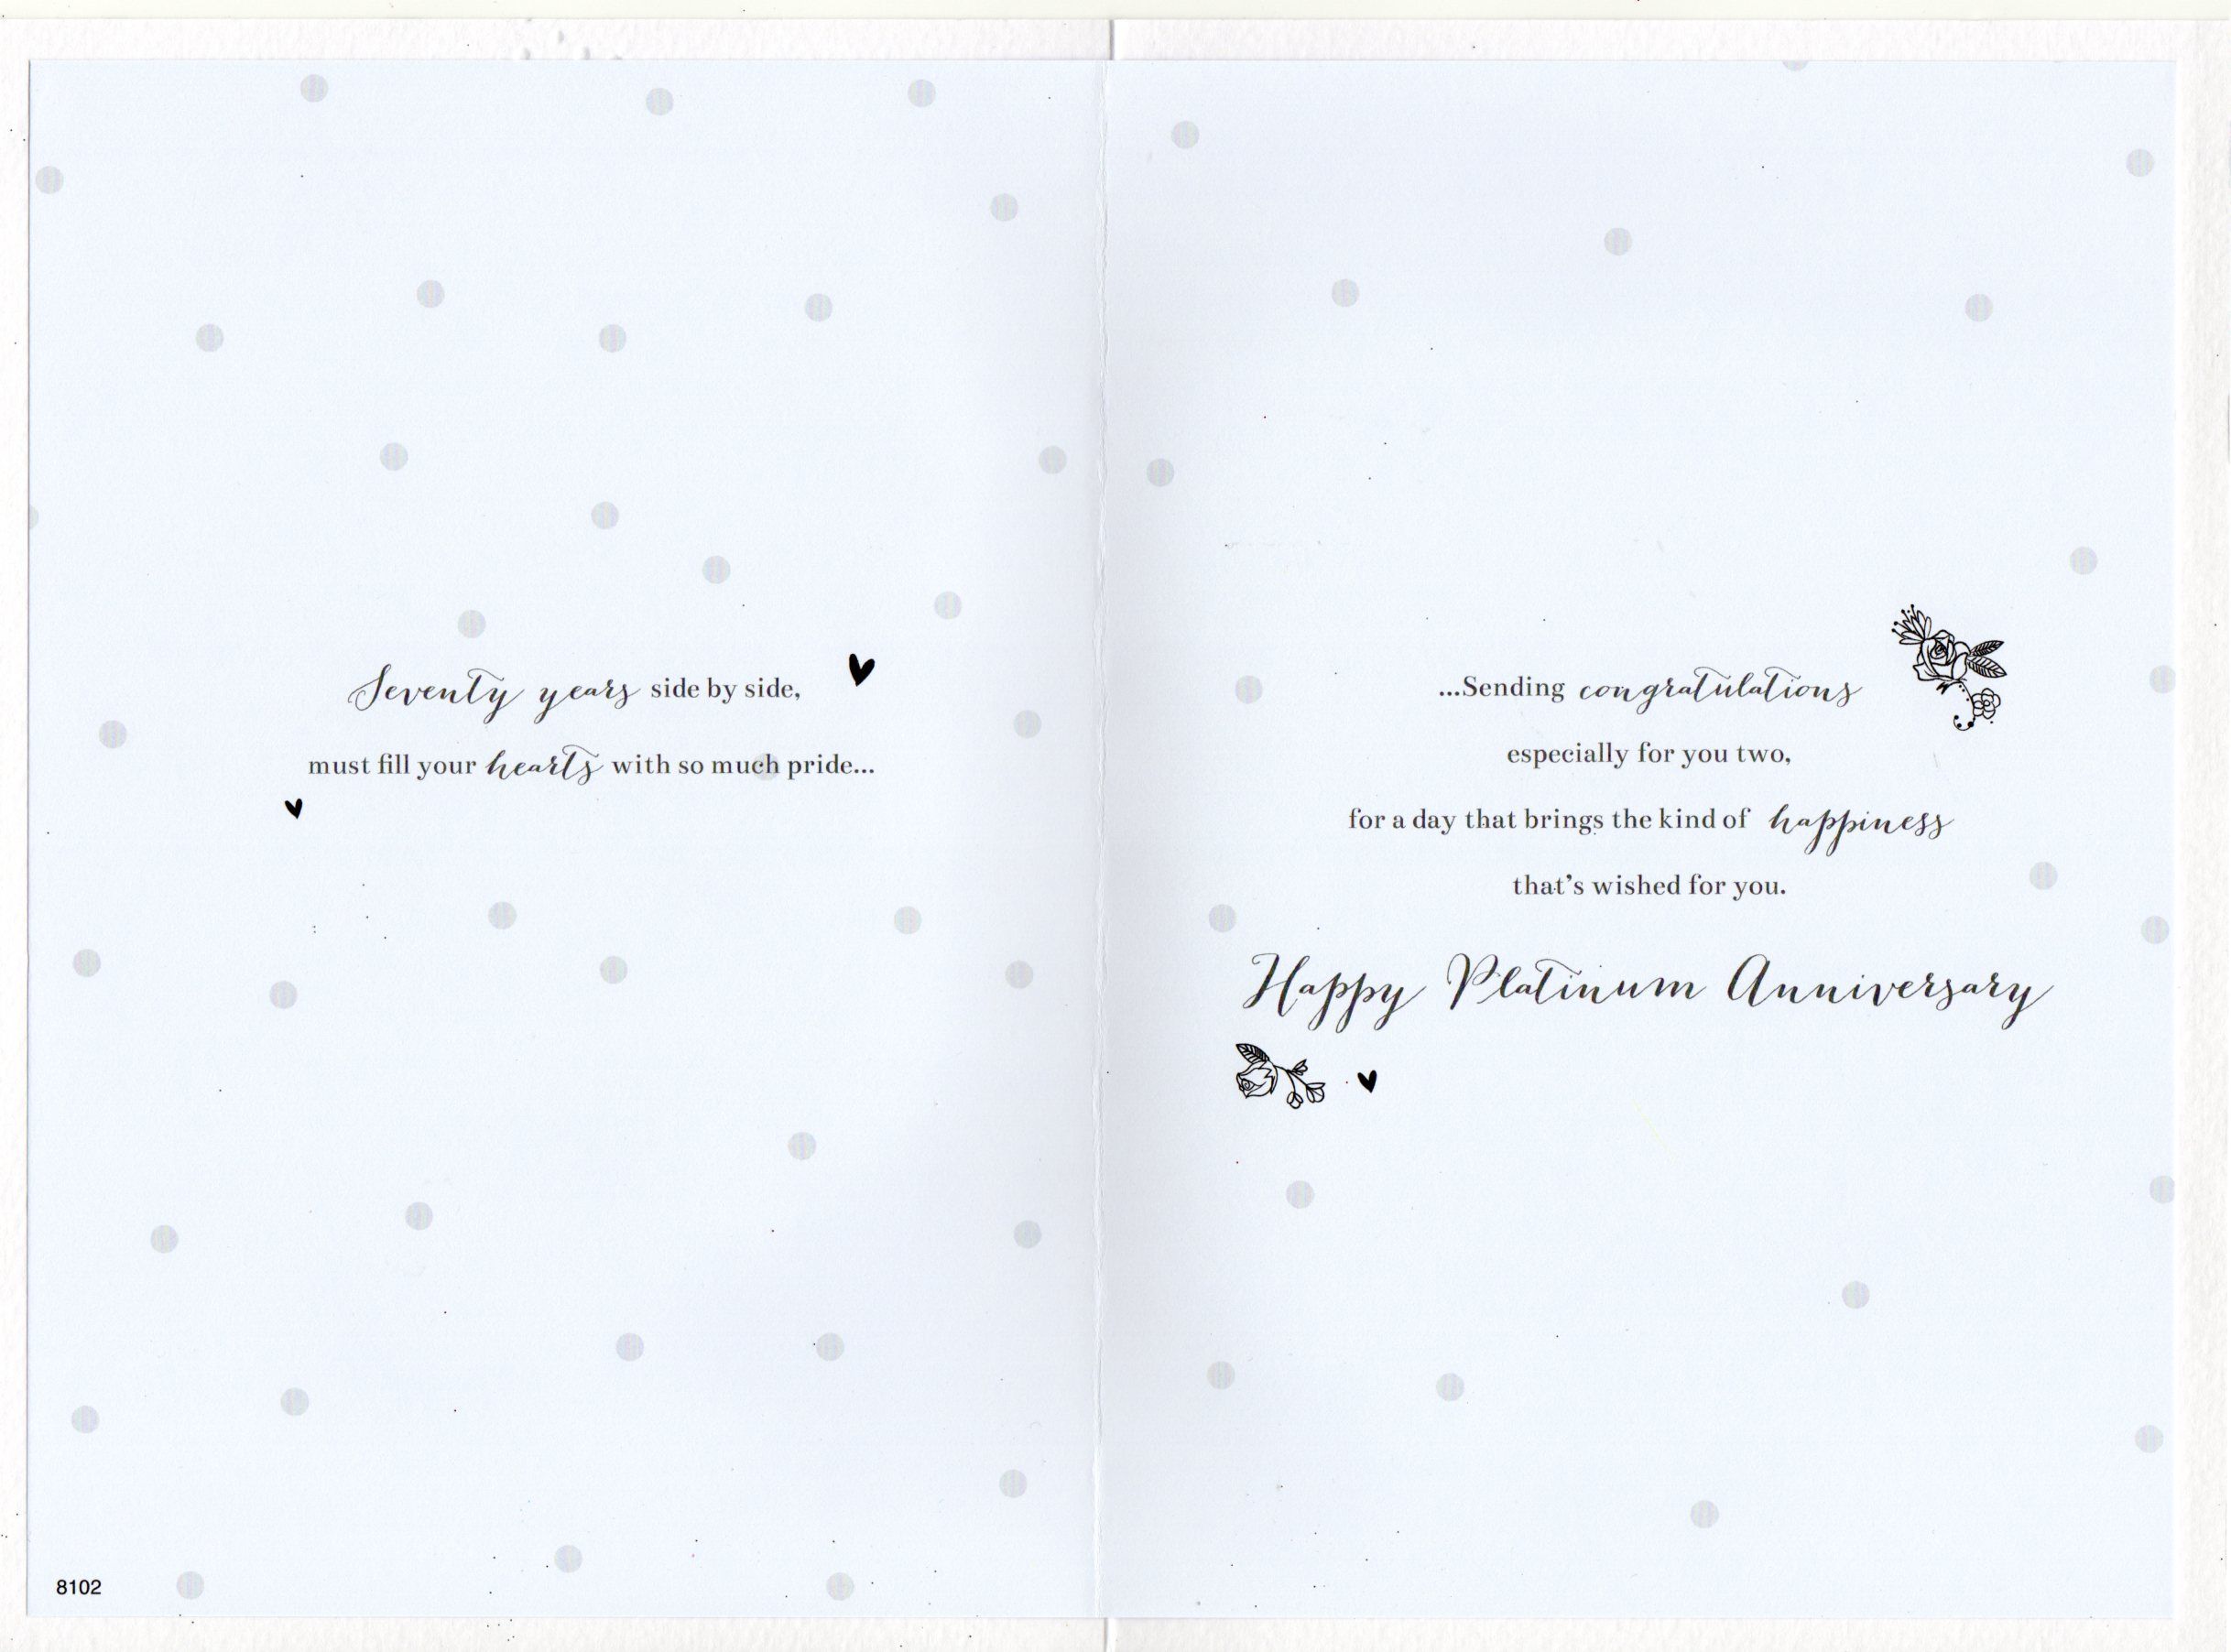 Seventy years side by side,
must fill your hearts with so much pride...
8102
...Sending congratulations
especially for you two,
for a day that brings the kind of happiness
that's wished for you.
Happy Platinum Anniversary